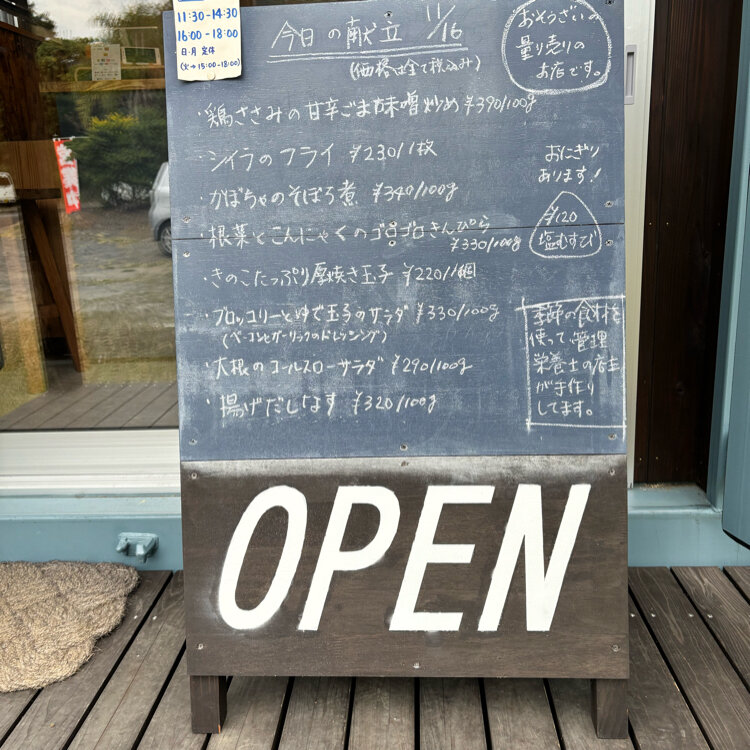 11:30-14:30
16:00-18:00
日・月 定休
(火→15:00-18:00)
今日の献立 11/16
(価格は全て税込み)
おそうざいの
量り売りの
お店です。
・鶏ささみの甘辛ごま味噌炒め ¥390/100g
・シイラのフライ ¥230/1枚
おにぎり
あります!
・かぼちゃのそぼろ煮 ¥340/100g
¥120
塩むすび
・根菜とこんにゃくのゴロゴロきんぴら
¥330/100g
・きのこたっぷり厚焼き玉子 ¥220/1個
・ブロッコリーとゆで玉子のサラダ ¥330/100g
(ベーコンとガーリックのドレッシング)
・大根のコールスローサラダ ¥290/100g
・揚げだしなす ¥320/100g
季節の食材を
使って管理
栄養士の店主
が手作り
してます。
OPEN